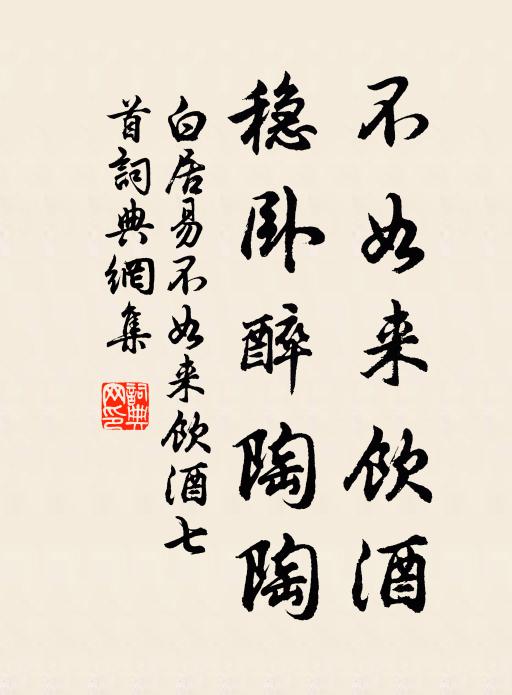 不如来饮酒
穏卧醉陶陶
白居易不如来饮酒七
首詞典網集
詞典
网印